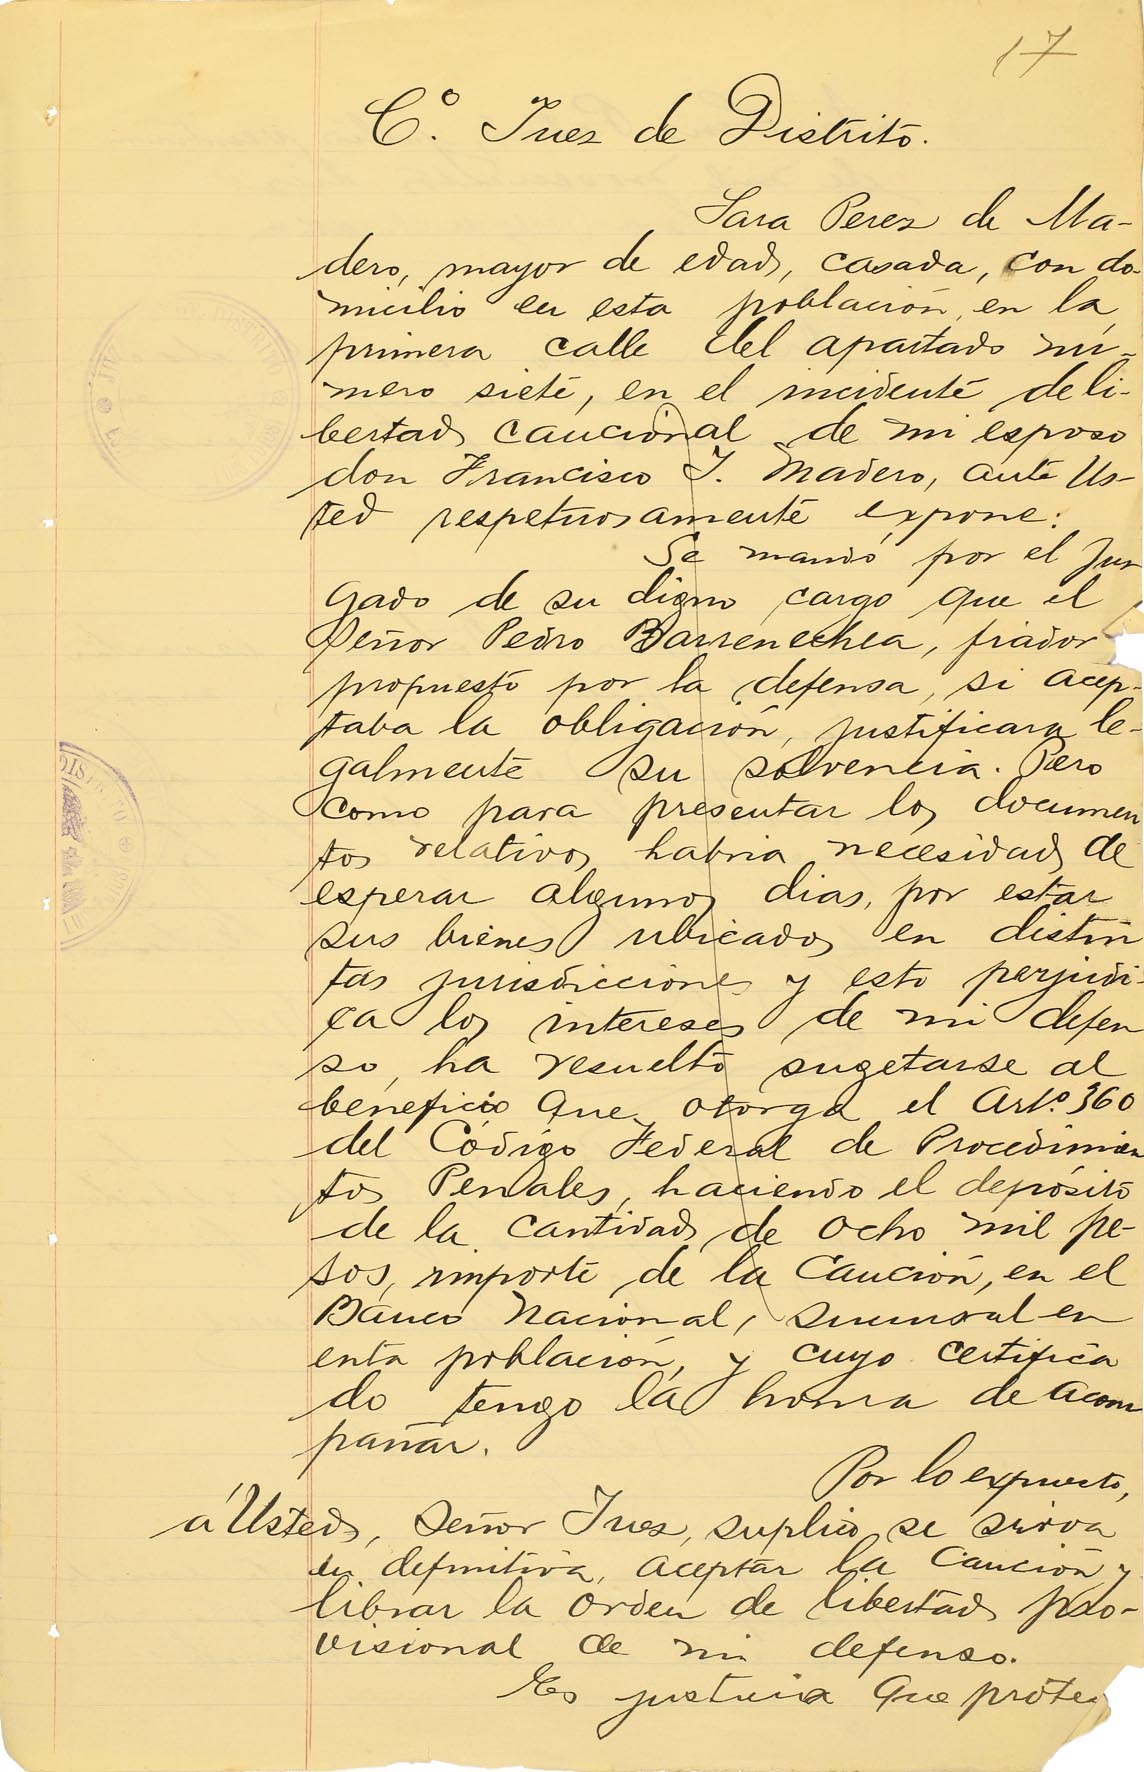 17
C.° Juez de Distrito.
Sara Perez de Ma-
dero, mayor de edad, casada, con do-
micilio en esta población, en la
primera calle del apartado nú-
mero siete, en el incidente de li-
bertad caucional de mi esposo
don Francisco I. Madero, ante Us-
ted respetuosamente expone:
Se mandó por el Juz
gado de su digno cargo que el
Señor Pedro Barrenechea, fiador
propuesto por la defensa, si acep-
taba la obligación, justificara le-
galmente su solvencia. Pero
como para presentar los documen
tos relativos habria necesidad de
esperar algunos dias, por estar
sus bienes ubicados en distin
tas jurisdicciones y esto perjudi-
ca los intereses de mi defen
so, ha resuelto sugetarse al
beneficio que otorga el Art.° 360
del Código Federal de Procedimien
tos Penales, haciendo el depósito
de la cantidad de ocho mil pe-
sos, importe de la Caución, en el
Banco Nacional, sucursal en
esta población, y cuyo certifica
do tengo la honra de acom
pañar.
Por lo expuesto,
á Usted, Señor Juez, suplico se sirva
en definitiva, aceptar la Caución y
librar la orden de libertad pro-
visional de mi defenso.
Es justicia que protes